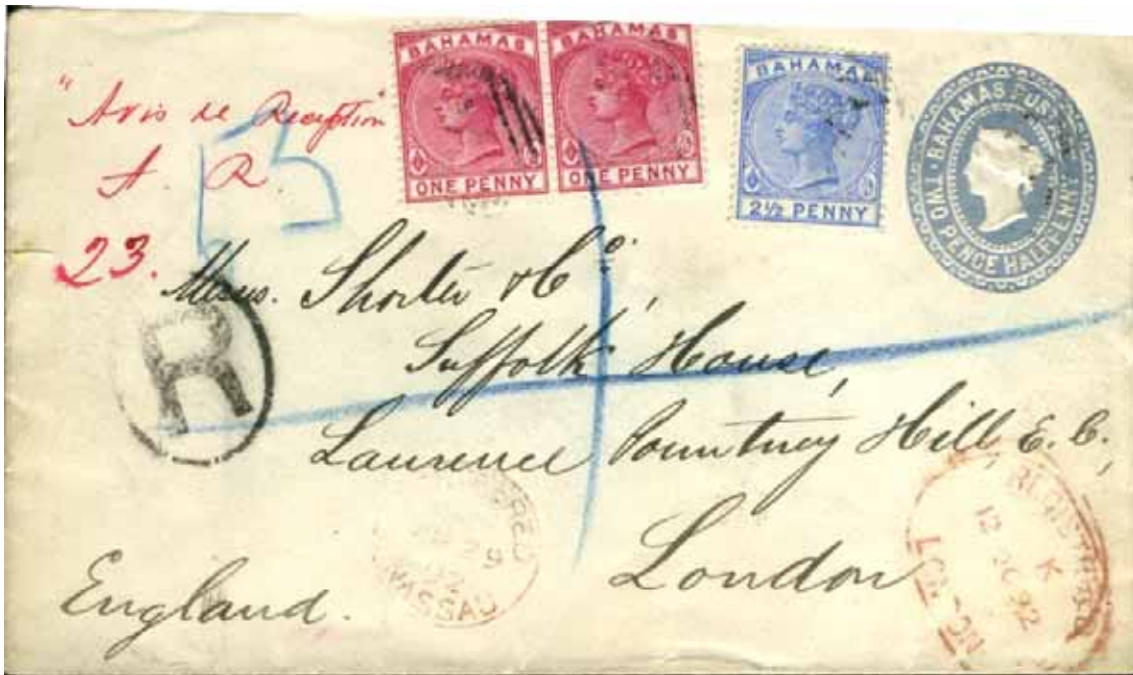 BAHAMAS
ONE PENNY
BAHAMAS
ONE PENNY
BAHAMAS
2½ PENNY
BAHAMAS POSTAGE
TWO PENCE HALFPENNY
"Avis de Reception"
A. R
23.
R
Messrs. Shorter & Co.,
Suffolk House,
Laurence Pountney Hill, E. C.,
London
England.
NASSAU
REGISTERED
K
12 92
LONDON